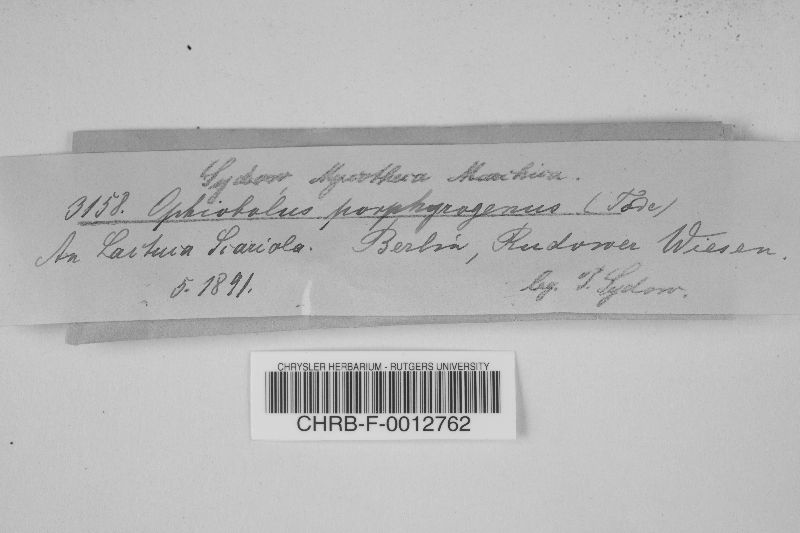 Sydow Mycotheca Marchica.
3158. Ophiobolus porphyrogenus (Tode)
An Lactuca Scariola. Berlin, Rudower Wiesen.
5. 1891. leg. P. Sydow.
CHRYSLER HERBARIUM - RUTGERS UNIVERSITY
CHRB-F-0012762